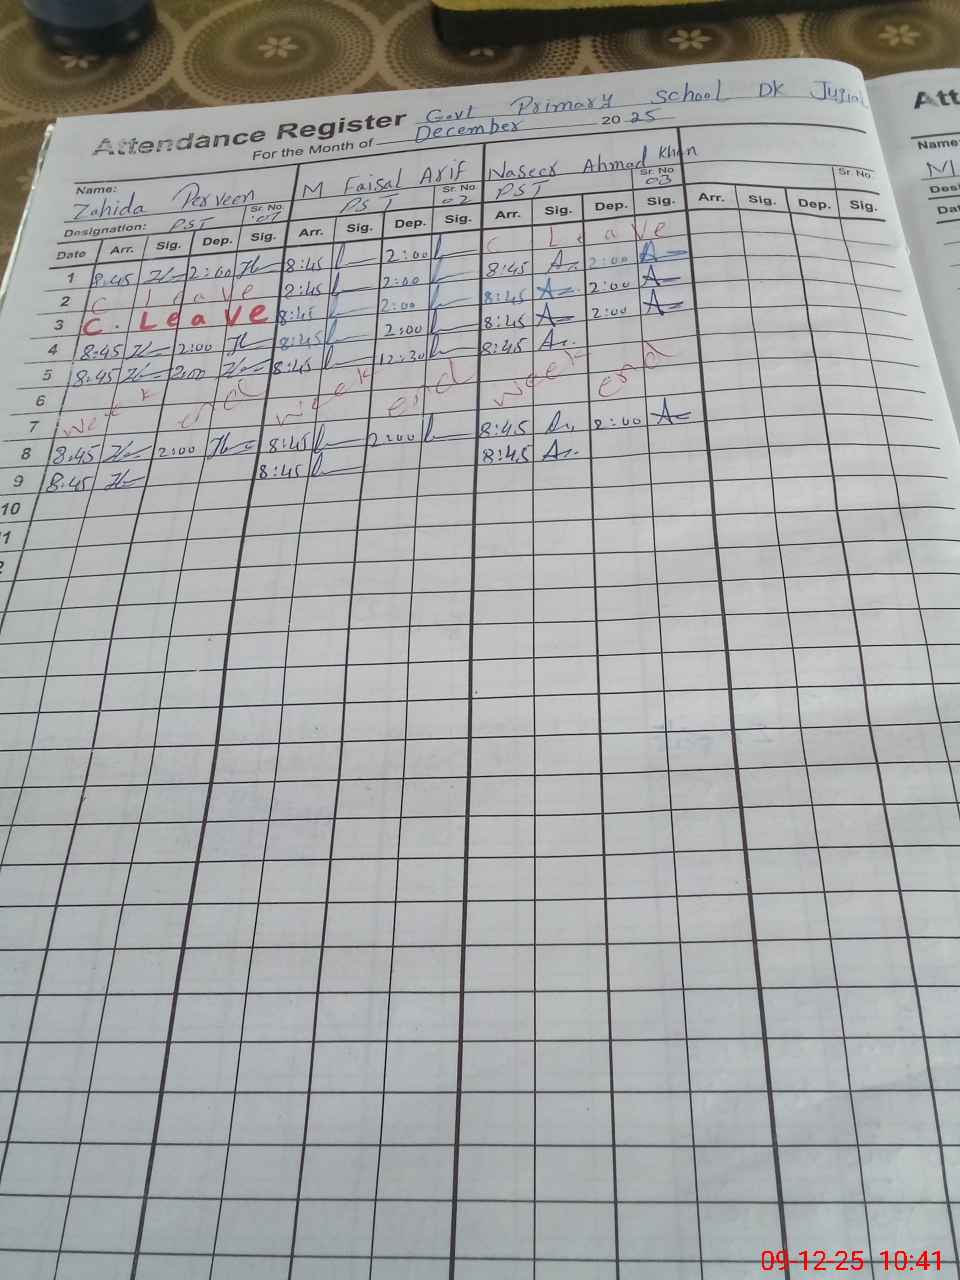 Attendance Register Govt Primary School DK
For the Month of December 2025
Name: Zahida Perveen M Faisal Arif Naseer Ahmad Khan
Designation: PST Sr. No. 01 PST Sr. No. 02 PST Sr. No. 03 Sr. No.
Date Arr. Sig. Dep. Sig. Arr. Sig. Dep. Sig. Arr. Sig. Dep. Sig. Arr. Sig. Dep. Sig.
1 8:45 2:00 8:45 2:00 C Leave
2 C Leave 2:45 2:00 8:45 2:00
3 C. Leave 8:45 2:00 8:45 2:00
4 8:45 2:00 8:45 2:00 8:45 2:00
5 8:45 2:00 8:45 12:30 8:45
6
7 Week end Week end Week end
8 8:45 2:00 8:45 2:00 8:45 2:00
9 8:45 8:45 8:45
10
Att
Name:
09-12-25 10:41